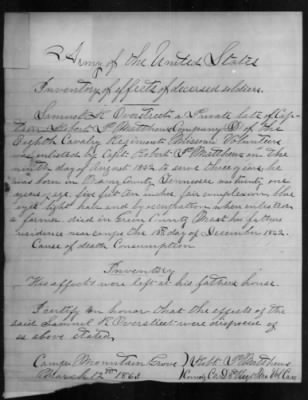 Army of the United States
Inventory of effects of deceased soldiers.
Samuel K Overstreet a Private late of Cap-
tain Robert P Matthews Company D of the
Eighth Cavalry Regiment Missouri Volunteers
was enlisted by Capt. Robert P. Matthews on the
day of August 1862 to serve three years he
was born in County Tennessee
years of age five feet inches fair complexion blue
eyes light hair and by occupation when enlisted
a farmer. died in Green County Mo at his fathers
residence near camp the 18th day of December 1862.
Cause of death Consumption
Inventory
His effects were left at his fathers house.
I certify on honor that the effects of the
said Samuel K Overstreet were disposed of
as above stated.
Camp Mountain Grove } Robt P. Matthews
March 12th 1863 } Comdg Co. D 8 Regt Mo Vol Cav